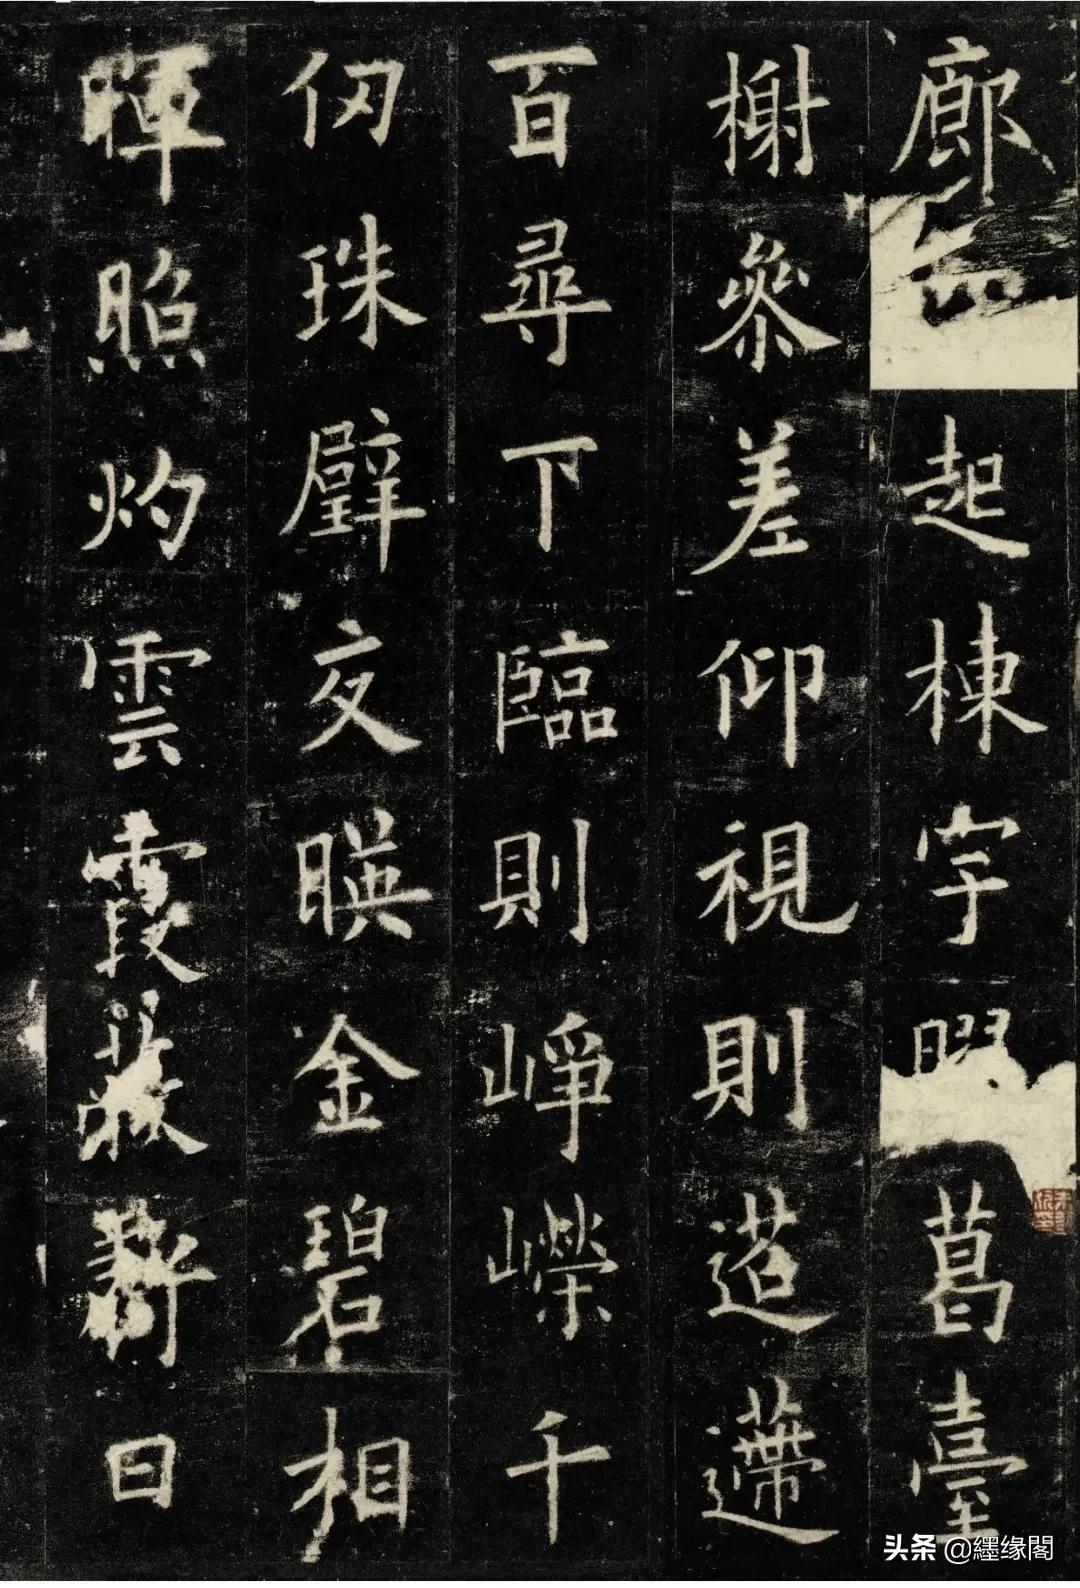 廊起棟宇葛臺
榭參差仰視則迢遰
百尋下臨則崢嶸千
仞珠璧交暎金碧相
暉照灼雲霞蔽虧日
头条 @纆缘閣